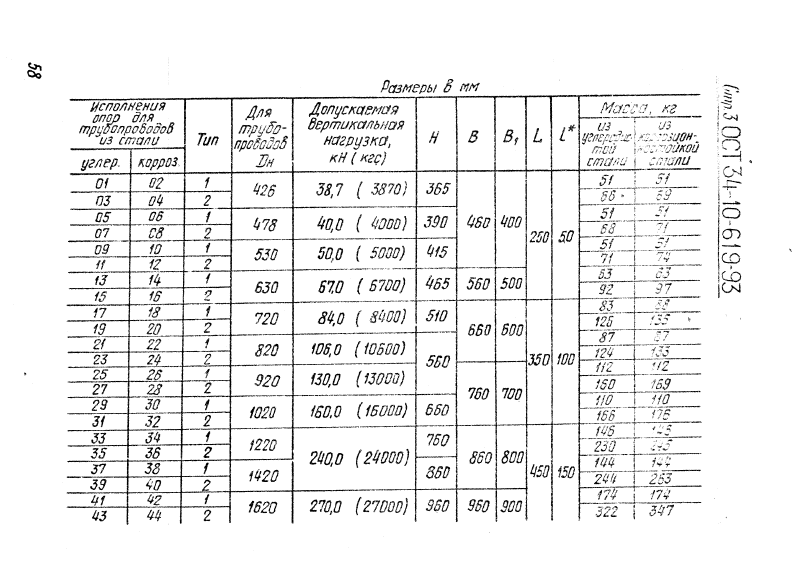 58
Размеры в мм
Исполнения опор для трубопроводов из стали | Тип | Для трубопроводов Dн | Допускаемая вертикальная нагрузка, кН (кгс) | H | B | B₁ | L | L* | Масса, кг
углер. | корроз. | из углеродистой стали | из коррозионностойкой стали
01 02 1 426 38,7 (3870) 365 460 400 250 50 51 51
03 04 2 69
05 06 1 478 40,0 (4000) 390 51 51
07 08 2 68 71
09 10 1 530 50,0 (5000) 415 51 51
11 12 2 71 74
13 14 1 630 67,0 (6700) 465 560 500 63 63
15 16 2 92 97
17 18 1 720 84,0 (8400) 510 660 600 350 100 83
19 20 2 126 135
21 22 1 820 106,0 (10600) 560 87 87
23 24 2 124 133
25 26 1 920 130,0 (13000) 760 700 112 112
27 28 2 160 169
29 30 1 1020 160,0 (16000) 660 110 110
31 32 2 166 176
33 34 1 1220 240,0 (24000) 760 860 800 450 150 146 146
35 36 2 230
37 38 1 1420 860 144 144
39 40 2 244 263
41 42 1 1620 270,0 (27000) 960 960 900 174 174
43 44 2 322 347
Стр. 3 ОСТ 34-10-619-93